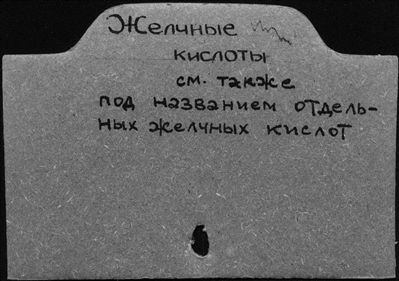 Желчные
кислоты
см. также
под названием отдель-
ных желчных кислот